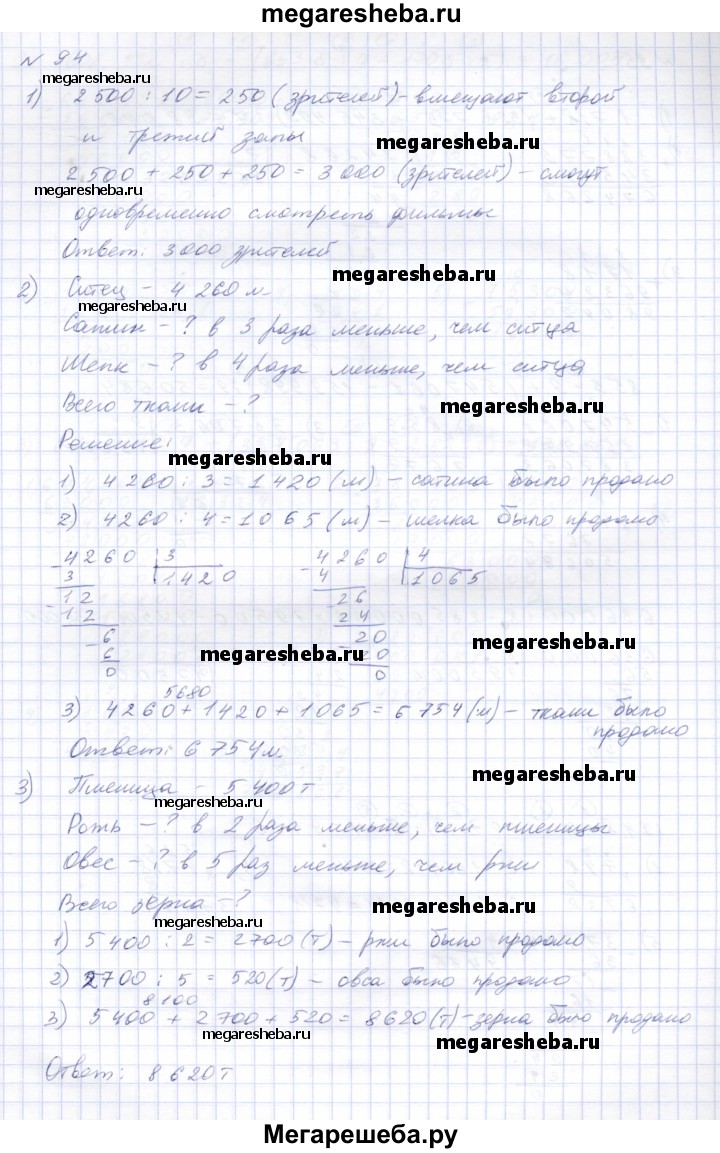 megaresheba.ru
N 94
megaresheba.ru
1) 2 500 : 10 = 250 (зрителей) - вмещают второй
и третий залы
megaresheba.ru
2 500 + 250 + 250 = 3 000 (зрителей) - смогут
megaresheba.ru
одновременно смотреть фильмы
Ответ: 3000 зрителей
megaresheba.ru
2) Ситец - 4 260 м
megaresheba.ru
Сатин - ? в 3 раза меньше, чем ситца
Шелк - ? в 4 раза меньше, чем ситца
Всего ткани - ?
megaresheba.ru
Решение:
megaresheba.ru
1) 4260 : 3 = 1420 (м) - сатина было продано
2) 4260 : 4 = 1065 (м) - шелка было продано
4260 3 4260 4
3 1420 4 1065
12 26
12 24
6 20
6 20
0 0
megaresheba.ru
megaresheba.ru
5680
3) 4260 + 1420 + 1065 = 6 754 (м) - ткани было
продано
Ответ: 6 754 м.
megaresheba.ru
3) Пшеница - 5 400 т
megaresheba.ru
Рожь - ? в 2 раза меньше, чем пшеницы
Овес - ? в 5 раз меньше, чем ржи
Всего зерна - ?
megaresheba.ru
megaresheba.ru
1) 5 400 : 2 = 2700 (т) - ржи было продано
2) 2700 : 5 = 520 (т) - овса было продано
8 100
3) 5 400 + 2 700 + 520 = 8620 (т) - зерна было продано
megaresheba.ru
megaresheba.ru
Ответ: 8 620 т
Мегарешеба.ру